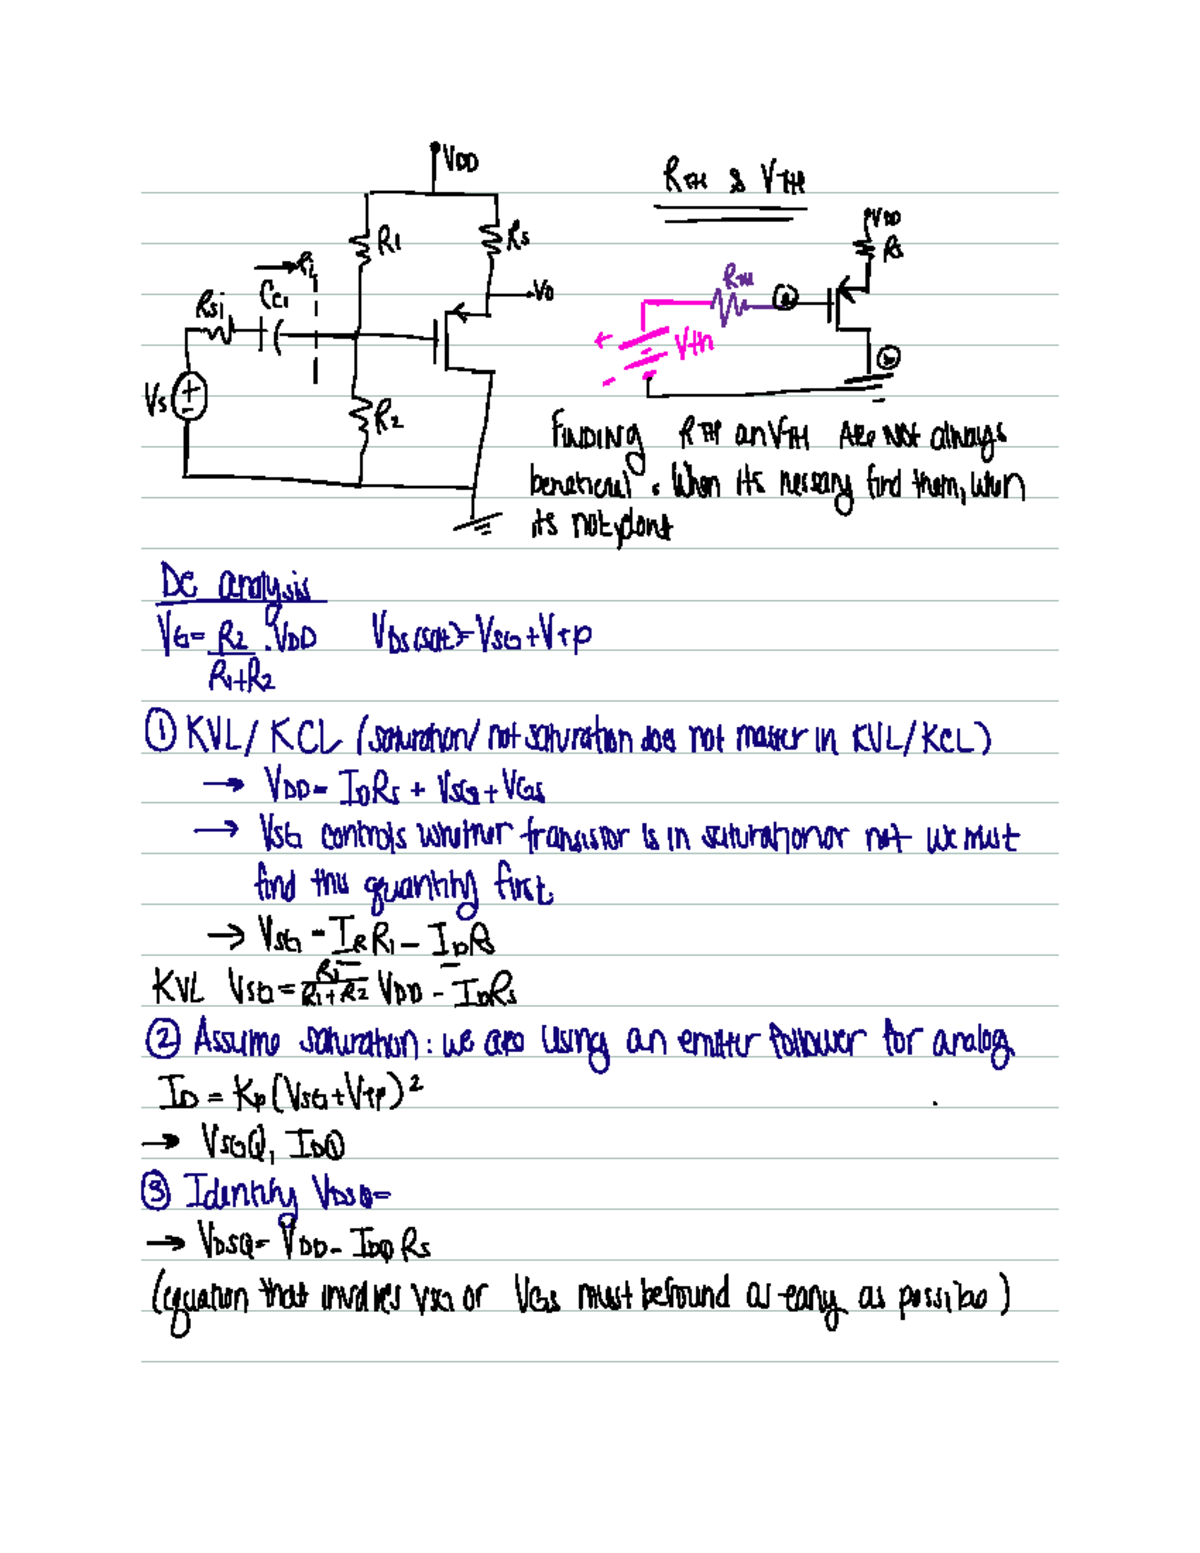 VDD
RTH & VTH
R1
Rs
VDD
Rs
Ri
Cc1
Vo
Rsi
RTH
a
Vth
b
Vs
+
-
R2
FINDING RTH an VTH ARE NOT always
benefical. When its nessary find them, when
its not dont
DC analysis
VG = R2 / R1+R2 . VDD VDS(sat) = VSG + VTP
① KVL / KCL (saturation/ not saturation does not matter in KVL/KCL)
→ VDD = IDRs + VSG + VGs
→ VSG controls whether transistor is in saturation or not we must
find this quantity first.
→ VSG = IR R1 - IDRs
KVL VSG = R1 / R1+R2 VDD - IDRs
② Assume saturation: we are using an emitter follower for analog
ID = Kp (VSG + VTP)²
→ VSGQ, IDQ
③ Identify VDSQ =
→ VDSQ = VDD - IDQ Rs
(equation that involves VSG or VGS must be found as early as possible)